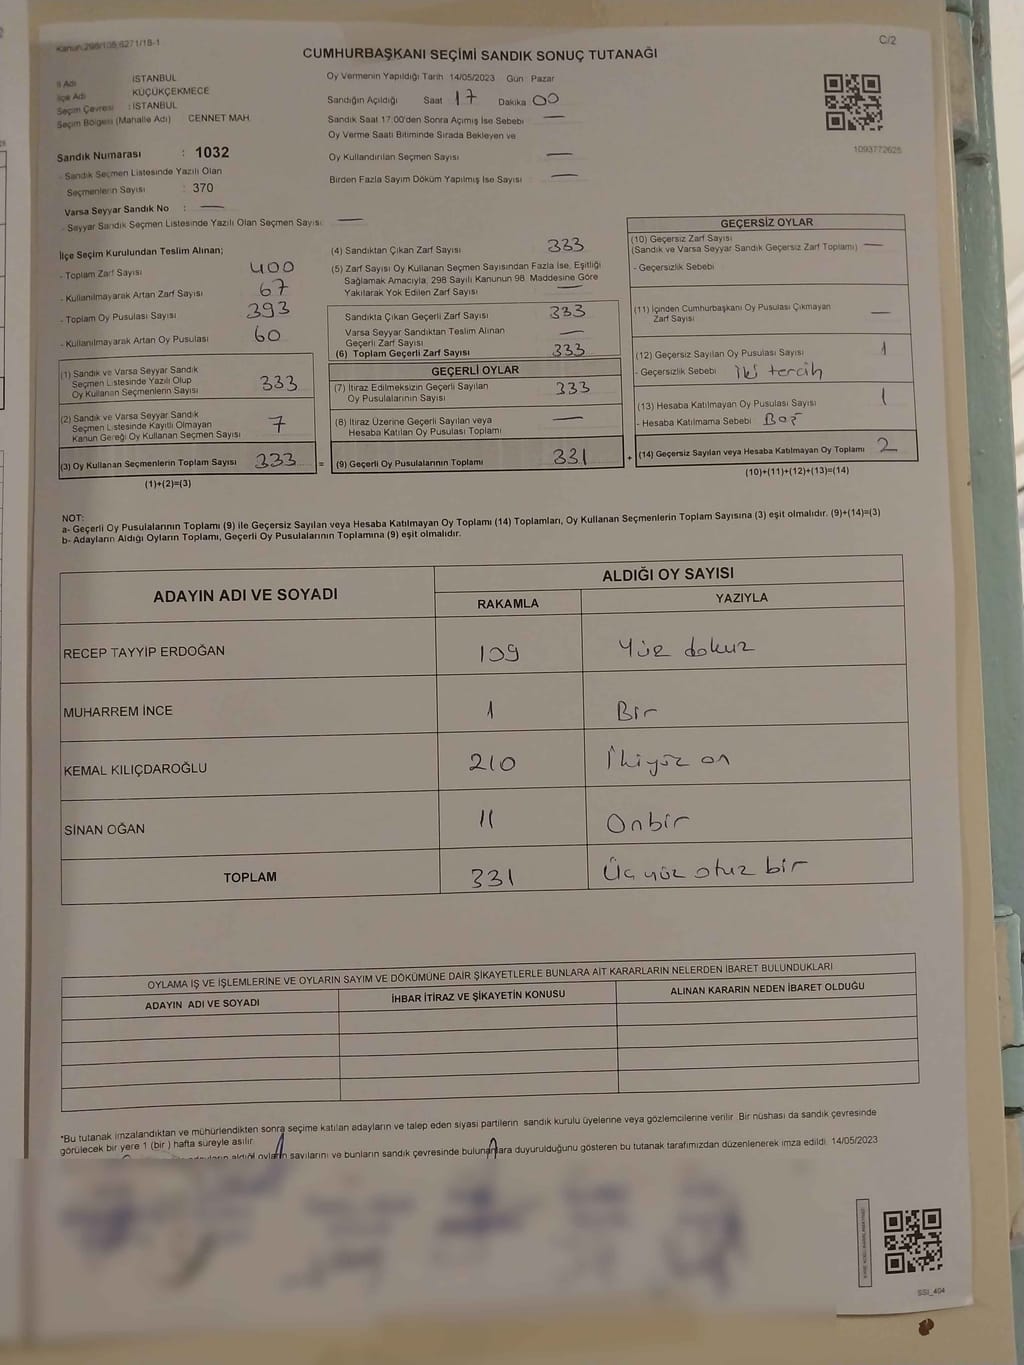 Kanun:298/105,6271/18-1
C/2
CUMHURBAŞKANI SEÇİMİ SANDIK SONUÇ TUTANAĞI
İl Adı : İSTANBUL
İlçe Adı : KÜÇÜKÇEKMECE
Seçim Çevresi : İSTANBUL
Seçim Bölgesi (Mahalle Adı) CENNET MAH.
Oy Vermenin Yapıldığı Tarih 14/05/2023 Gün : Pazar
Sandığın Açıldığı Saat 17 Dakika 00
Sandık Saat 17:00'den Sonra Açımış İse Sebebi —
Oy Verme Saati Bitiminde Sırada Bekleyen ve
Oy Kullandırılan Seçmen Sayısı —
Birden Fazla Sayım Döküm Yapılmış İse Sayısı —
1093772625
Sandık Numarası : 1032
- Sandık Seçmen Listesinde Yazılı Olan
Seçmenlerin Sayısı : 370
Varsa Seyyar Sandık No : —
- Seyyar Sandık Seçmen Listesinde Yazılı Olan Seçmen Sayısı : —
İlçe Seçim Kurulundan Teslim Alınan;
- Toplam Zarf Sayısı 400
- Kullanılmayarak Artan Zarf Sayısı 67
- Toplam Oy Pusulası Sayısı 393
- Kullanılmayarak Artan Oy Pusulası 60
(1) Sandık ve Varsa Seyyar Sandık
Seçmen Listesinde Yazılı Olup
Oy Kullanan Seçmenlerin Sayısı 333
(2) Sandık ve Varsa Seyyar Sandık
Seçmen Listesinde Kayıtlı Olmayan
Kanun Gereği Oy Kullanan Seçmen Sayısı 7
(3) Oy Kullanan Seçmenlerin Toplam Sayısı 333 =
(1)+(2)=(3)
(4) Sandıktan Çıkan Zarf Sayısı 333
(5) Zarf Sayısı Oy Kullanan Seçmen Sayısından Fazla İse, Eşitliği
Sağlamak Amacıyla, 298 Sayılı Kanunun 98. Maddesine Göre
Yakılarak Yok Edilen Zarf Sayısı —
Sandıkta Çıkan Geçerli Zarf Sayısı 333
Varsa Seyyar Sandıktan Teslim Alınan
Geçerli Zarf Sayısı —
(6) Toplam Geçerli Zarf Sayısı 333
GEÇERLİ OYLAR
(7) İtiraz Edilmeksizin Geçerli Sayılan
Oy Pusulalarının Sayısı 333
(8) İtiraz Üzerine Geçerli Sayılan veya
Hesaba Katılan Oy Pusulası Toplamı —
(9) Geçerli Oy Pusulalarının Toplamı 331 +
GEÇERSİZ OYLAR
(10) Geçersiz Zarf Sayısı
(Sandık ve Varsa Seyyar Sandık Geçersiz Zarf Toplamı) —
- Geçersizlik Sebebi
(11) İçinden Cumhurbaşkanı Oy Pusulası Çıkmayan
Zarf Sayısı —
(12) Geçersiz Sayılan Oy Pusulası Sayısı 1
- Geçersizlik Sebebi İki tercih
(13) Hesaba Katılmayan Oy Pusulası Sayısı 1
- Hesaba Katılmama Sebebi Boş
(14) Geçersiz Sayılan veya Hesaba Katılmayan Oy Toplamı 2
(10)+(11)+(12)+(13)=(14)
NOT:
a- Geçerli Oy Pusulalarının Toplamı (9) ile Geçersiz Sayılan veya Hesaba Katılmayan Oy Toplamı (14) Toplamları, Oy Kullanan Seçmenlerin Toplam Sayısına (3) eşit olmalıdır. (9)+(14)=(3)
b- Adayların Aldığı Oyların Toplamı, Geçerli Oy Pusulalarının Toplamına (9) eşit olmalıdır.
ADAYIN ADI VE SOYADI
ALDIĞI OY SAYISI
RAKAMLA YAZIYLA
RECEP TAYYİP ERDOĞAN 109 Yüz dokuz
MUHARREM İNCE 1 Bir
KEMAL KILIÇDAROĞLU 210 İkiyüz on
SİNAN OĞAN 11 Onbir
TOPLAM 331 Üç yüz otuz bir
OYLAMA İŞ VE İŞLEMLERİNE VE OYLARIN SAYIM VE DÖKÜMÜNE DAİR ŞİKAYETLERLE BUNLARA AİT KARARLARIN NELERDEN İBARET BULUNDUKLARI
ADAYIN ADI VE SOYADI İHBAR İTİRAZ VE ŞİKAYETİN KONUSU ALINAN KARARIN NEDEN İBARET OLDUĞU
*Bu tutanak imzalandıktan ve mühürlendikten sonra seçime katılan adayların ve talep eden siyasi partilerin sandık kurulu üyelerine veya gözlemcilerine verilir. Bir nüshası da sandık çevresinde
görülecek bir yere 1 (bir ) hafta süreyle asılır.
aldığı oyların sayılarını ve bunların sandık çevresinde bulunanlara duyurulduğunu gösteren bu tutanak tarafımızdan düzenlenerek imza edildi. 14/05/2023
SSI_404